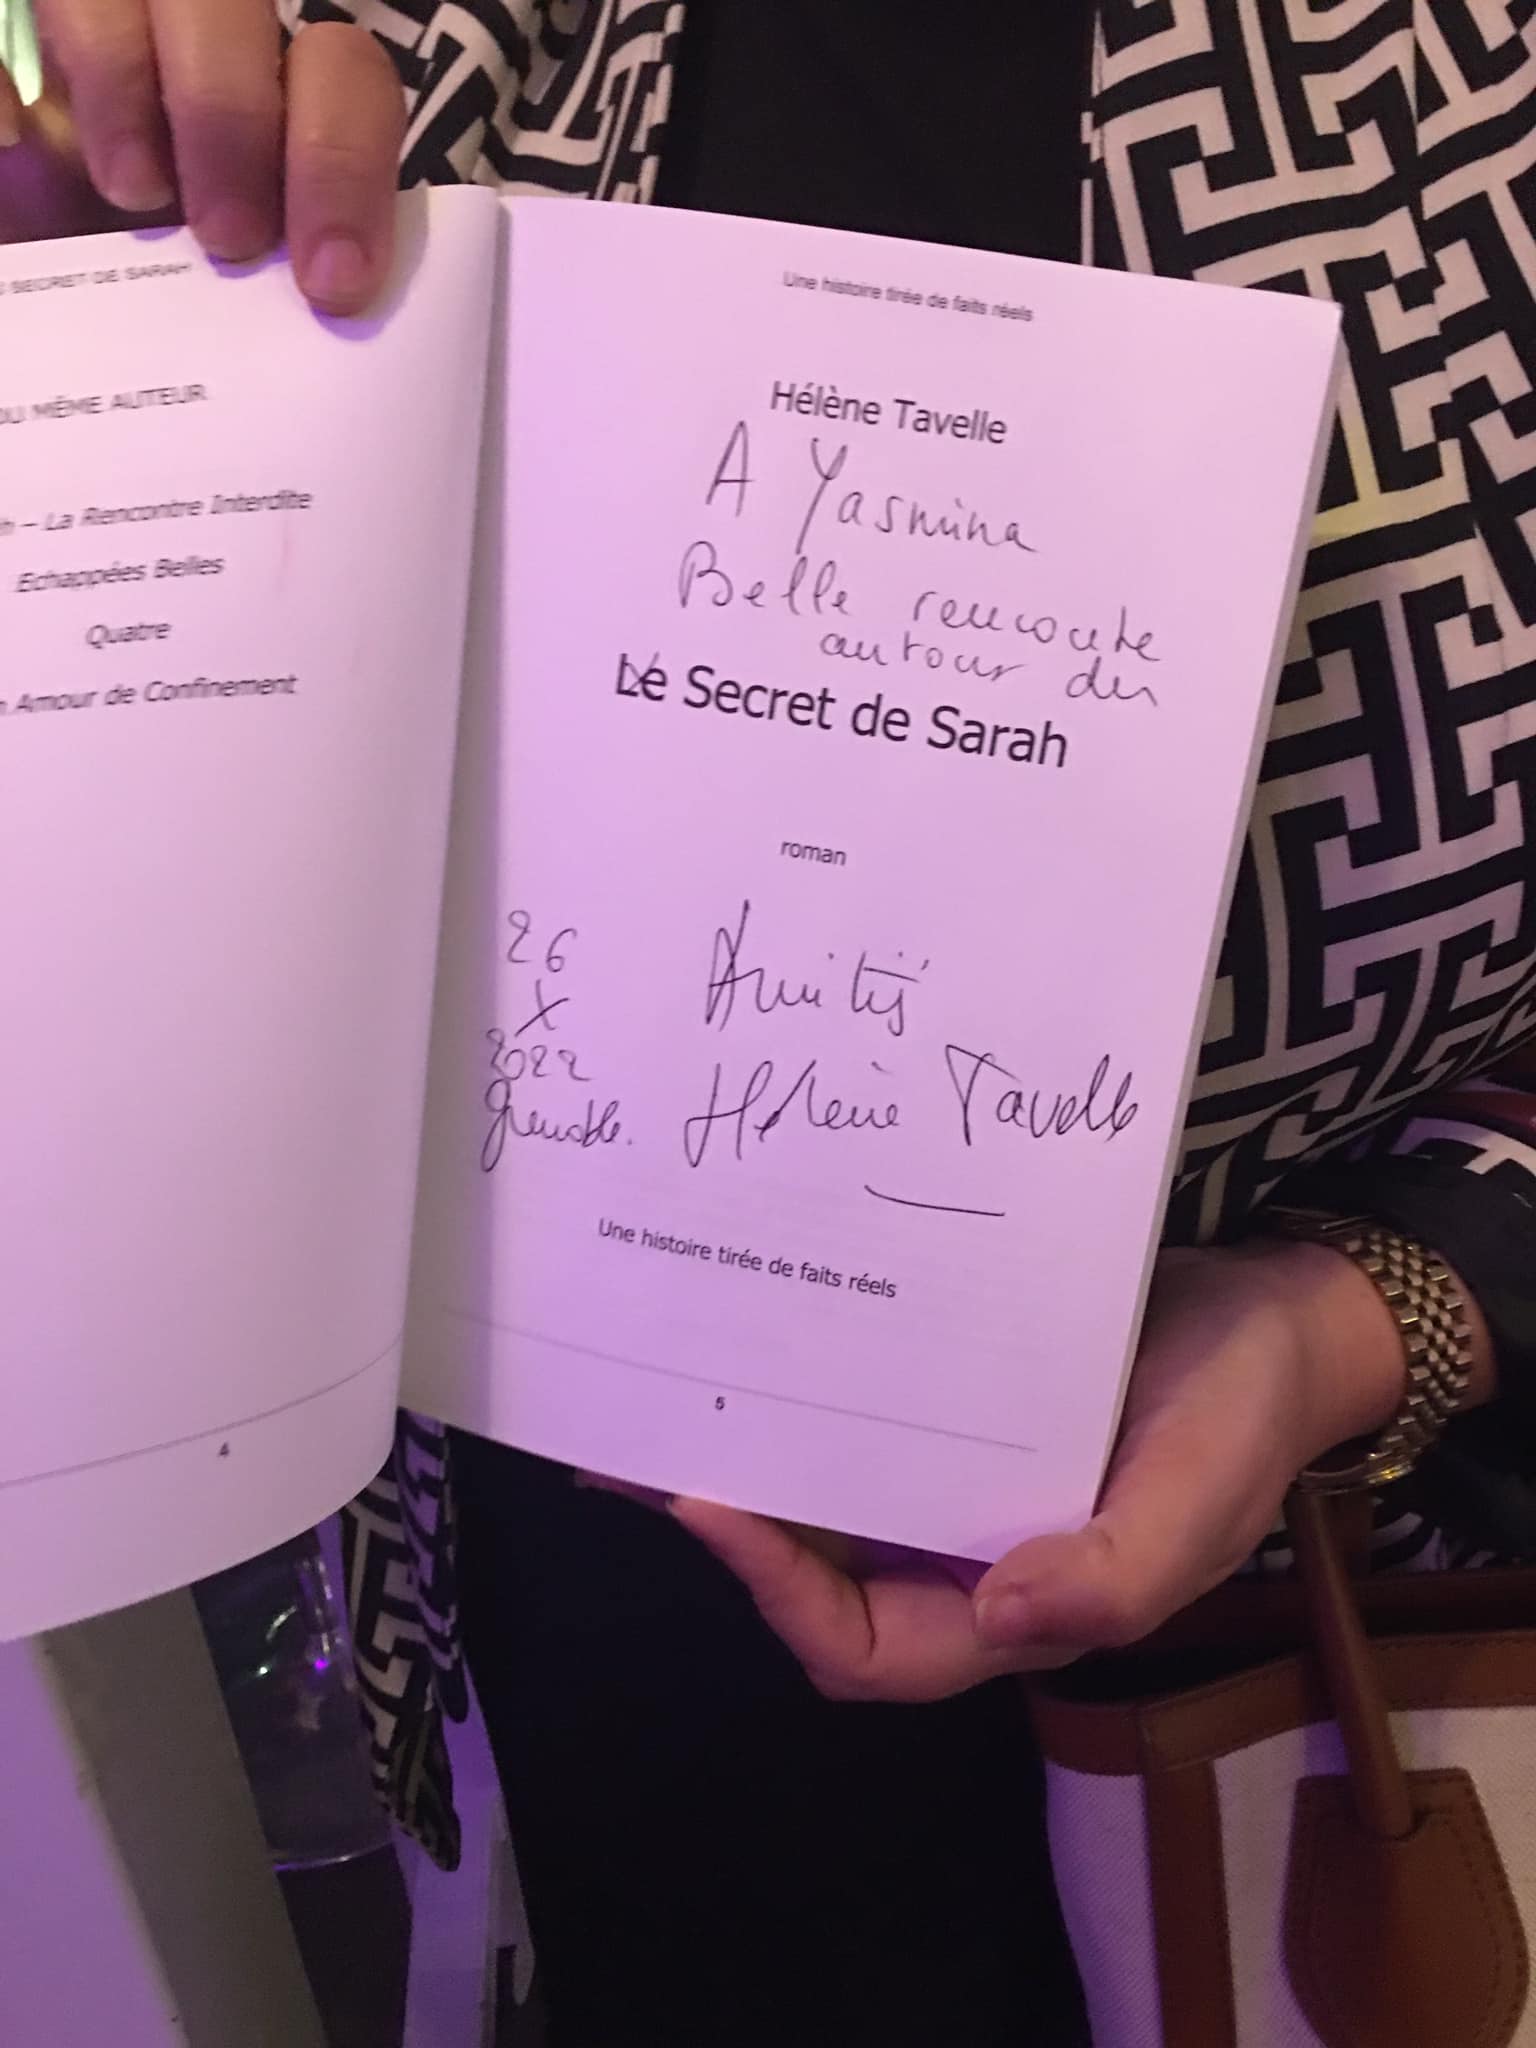 SECRET DE SARAH
DU MÊME AUTEUR
– La Rencontre Interdite
Echappées Belles
Quatre
Amour de Confinement
4
Une histoire tirée de faits réels
Hélène Tavelle
A Yasmina
Belle rencontre
autour du
Le Secret de Sarah
roman
26
X
2022
Grenoble.
Amitiés
Hélène Tavelle
Une histoire tirée de faits réels
5